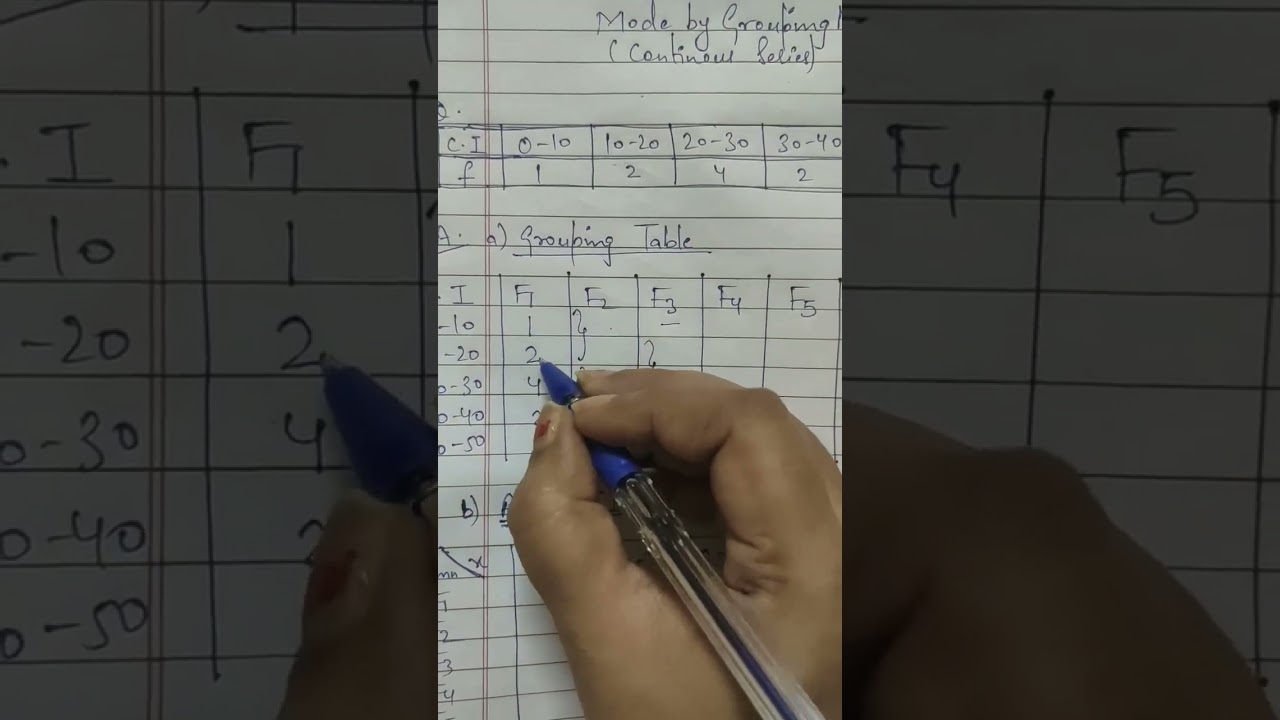 Mode by Grouping
(Continous Series)
Q.
C.I 0-10 10-20 20-30 30-40
f 1 2 4 2
A. a) Grouping Table
. I F1 F2 F3 F4 F5
-10 1 } —
-20 2 }
0-30 4
0-40 2
0-50
b)
x
mn
1
2
3
4